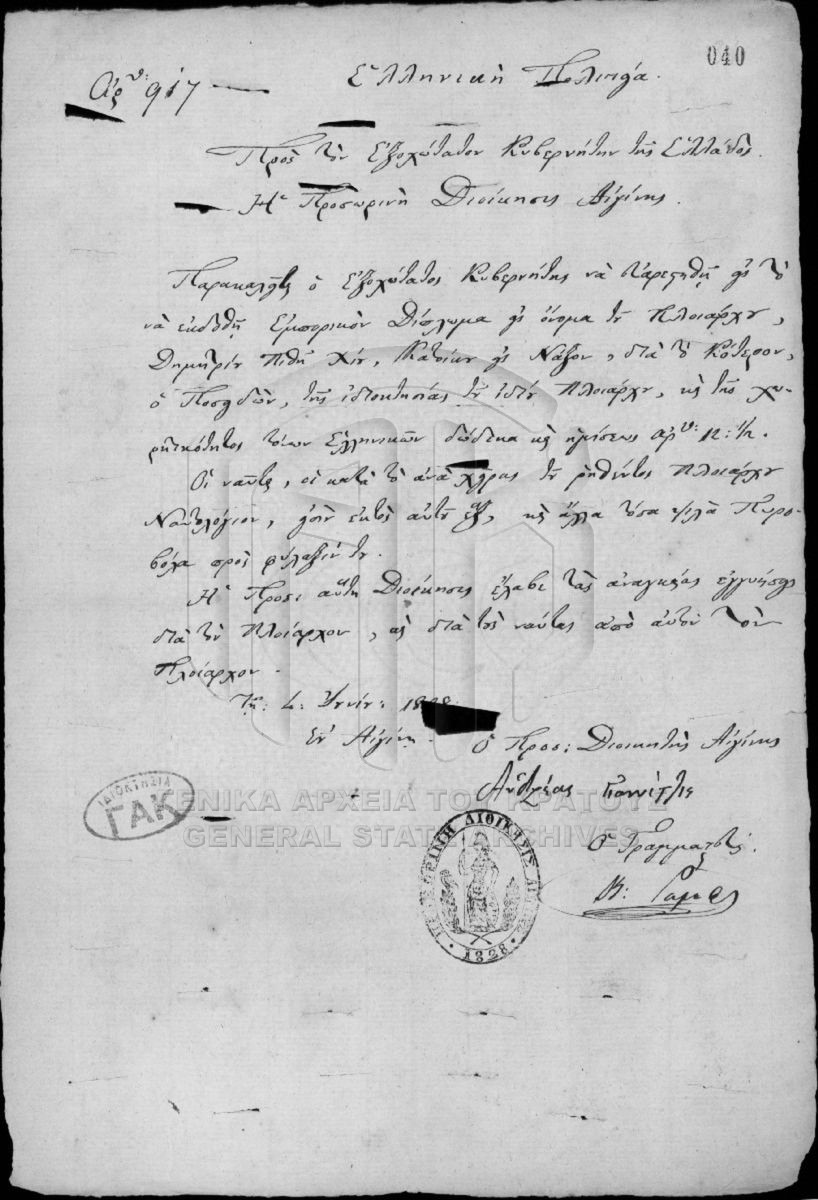 040
Ἀρ: 917
Ἑλληνικὴ Πολιτεία.
Πρὸς τὸν Ἐξοχώτατον Κυβερνήτην τῆς Ἑλλάδος.
Ἡ Προσωρινὴ Διοίκησις Αἰγίνης.
Παρακαλεῖται ὁ Ἐξοχώτατος Κυβερνήτης νὰ εὐαρεστηθῇ εἰς τὸ
νὰ ἐκδοθῇ Ἐμπορικὸν Δίπλωμα εἰς ὄνομα τοῦ Πλοιάρχου,
Δημητρίου Χίου, Κατοίκου εἰς Νάξον, διὰ τὸ Κότερον,
ὁ Ποσειδῶν, τῆς ἰδιοκτησίας τοῦ ἰδίου Πλοιάρχου, καὶ τῆς χω-
ρητικότητος τόνων Ἑλληνικῶν δώδεκα καὶ ἡμίσεως ἀρ: 12:1/2.
Οἱ ναῦται, οἱ κατὰ τὸ ἀνὰ χεῖρας τοῦ ῥηθέντος Πλοιάρχου
Ναυτολόγιον, εἰσὶν ἐκτὸς αὐτοῦ ἓξ, καὶ ἄλλα τόσα ψιλὰ Πυρο-
βόλα πρὸς φύλαξίν του.
Ἡ Προσ: αὕτη Διοίκησις ἔλαβε τὰς ἀναγκαίας ἐγγυήσεις
διὰ τὸν Πλοίαρχον, ὡς διὰ τοὺς ναύτας ἀπὸ αὐτὸν τὸν
Πλοίαρχον.
Τῇ: 4: Ἰουνίου: 1828
Ἐν Αἰγίνῃ.
Ὁ Προσ: Διοικητὴς Αἰγίνης
Ἀνδρέας
Ὁ Γραμματεύς.
ΙΔΙΟΚΤΗΣΙΑ
ΓΑΚ
ΓΕΝΙΚΑ ΑΡΧΕΙΑ ΤΟΥ ΚΡΑΤΟΥΣ
GENERAL STATE ARCHIVES
ΔΙΟΙΚΗΣΙΣ
1828